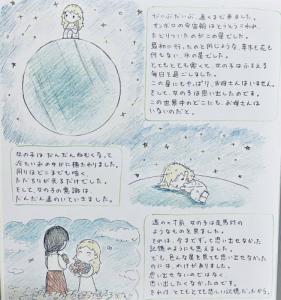 だいぶだいぶ、遠くまで来ました。
サンガツの宇宙船はとうとうこわれ
たどりついたのがこの星でした。
最初に行ったのと同じような、草木も花も
何もない、氷の星でした。
とてもとても寒くて、女の子はふるえる
毎日を過ごしました。
この星にもやっぱり、お母さんはいません。
そして、女の子は思い出したのです。
この世界中のどこにも、お母さんは
いないのだと。
女の子はだんだんねむくなって
冷たい氷の中から横たわりました。
周りはどこまでも暗く、
ただちりが光るだけでした。
そして、女の子の意識は
だんだん遠のいていきました。
遠のく寸前、女の子は走馬灯の
ようなものを見ました。
それは、今まですっと思い出せなかった
記憶のようにも思えました。
でも、色んな星を見ても思い出せなかった
のには、わけがありました。
思い出せないのではなく、
思い出したくなかったのです。
それは とてもとても悲しい記憶だったから。